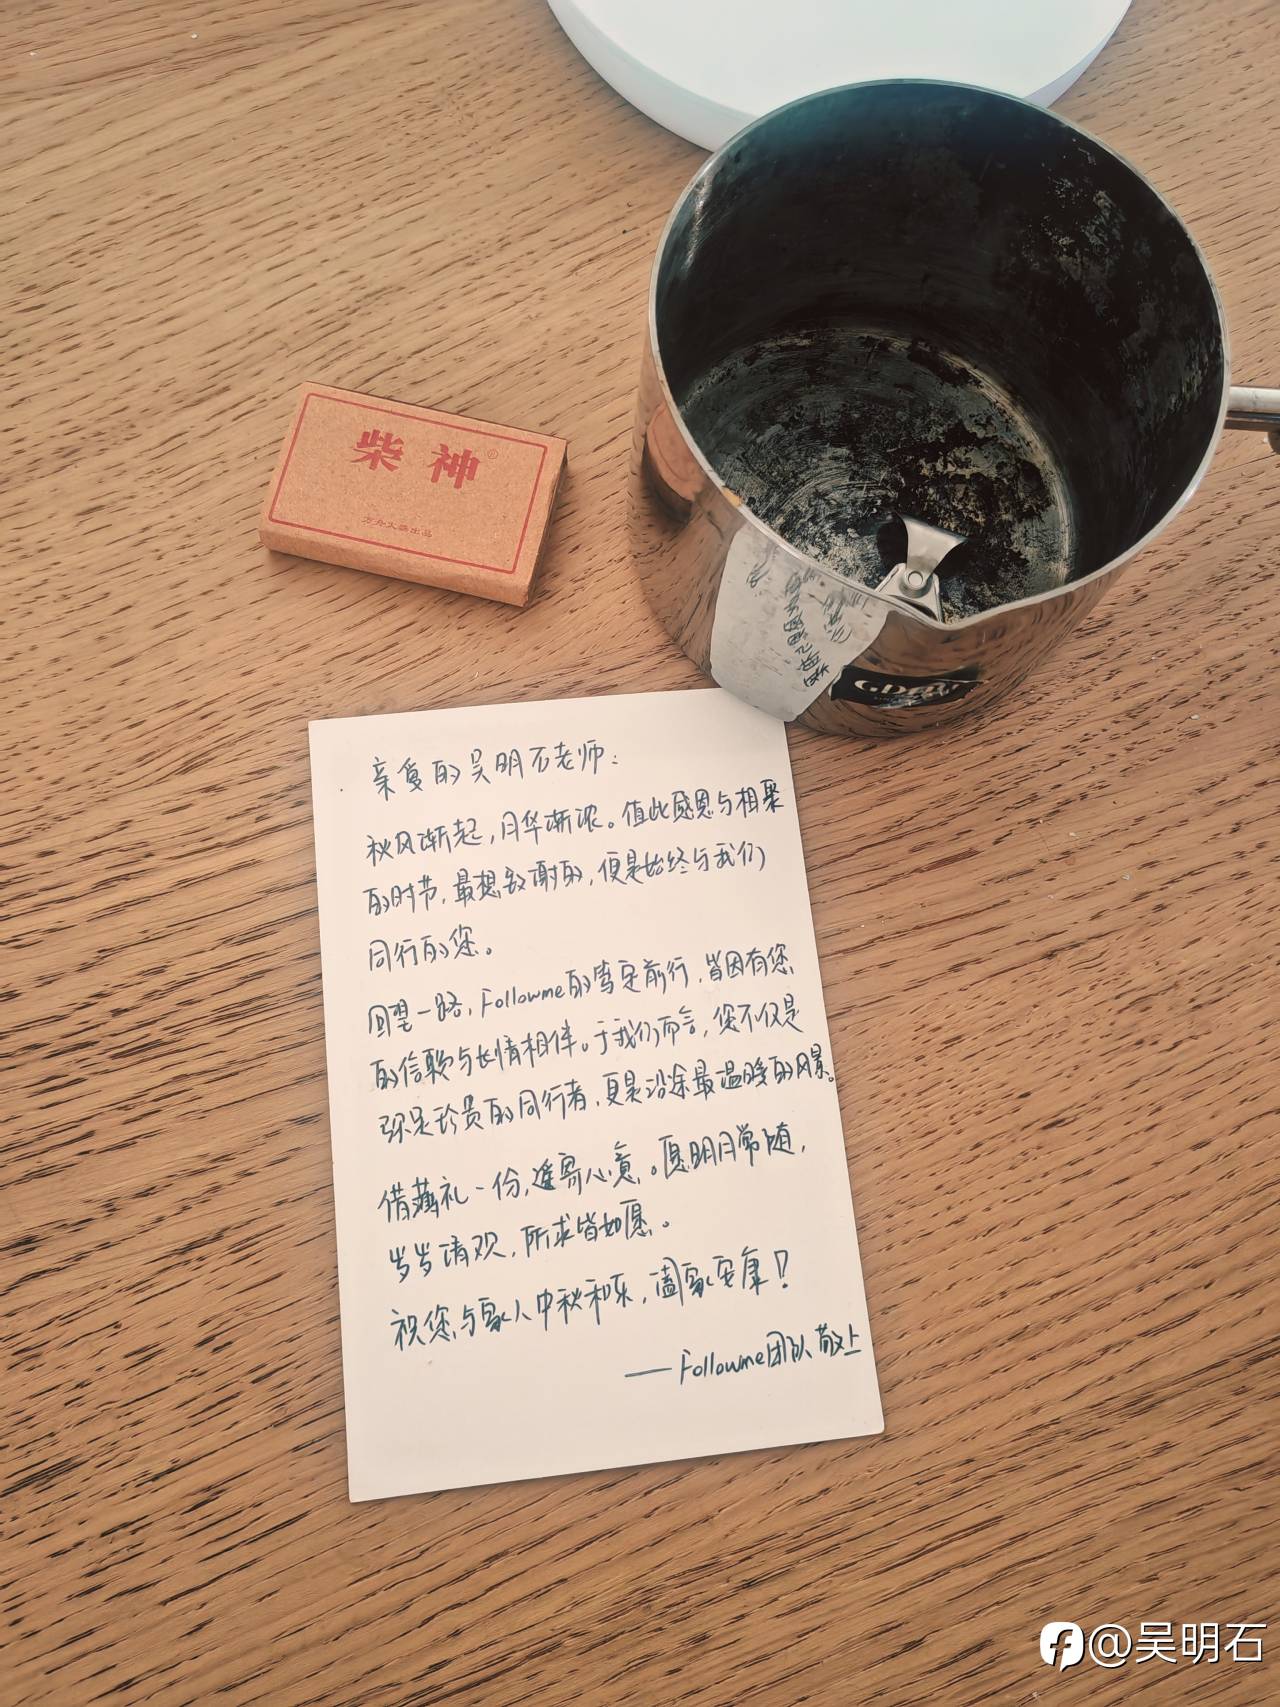 柴神®
方舟火柴出品
亲爱的吴明石老师：
秋风渐起，月华渐浓。值此感恩与相聚
的时节，最想致谢的，便是始终与我们
同行的您。
回望一路，Followme的笃定前行，皆因有您
的信赖与长情相伴。于我们而言，您不仅是
弥足珍贵的同行者，更是沿途最温暖的风景。
借薄礼一份，遥寄心意。愿明月常随，
岁岁清欢，所求皆如愿。
祝您与家人中秋和乐，阖家安康！
——Followme团队敬上
@吴明石